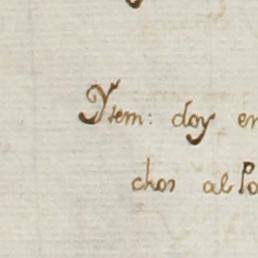 Ytem: doy en
chos al Po